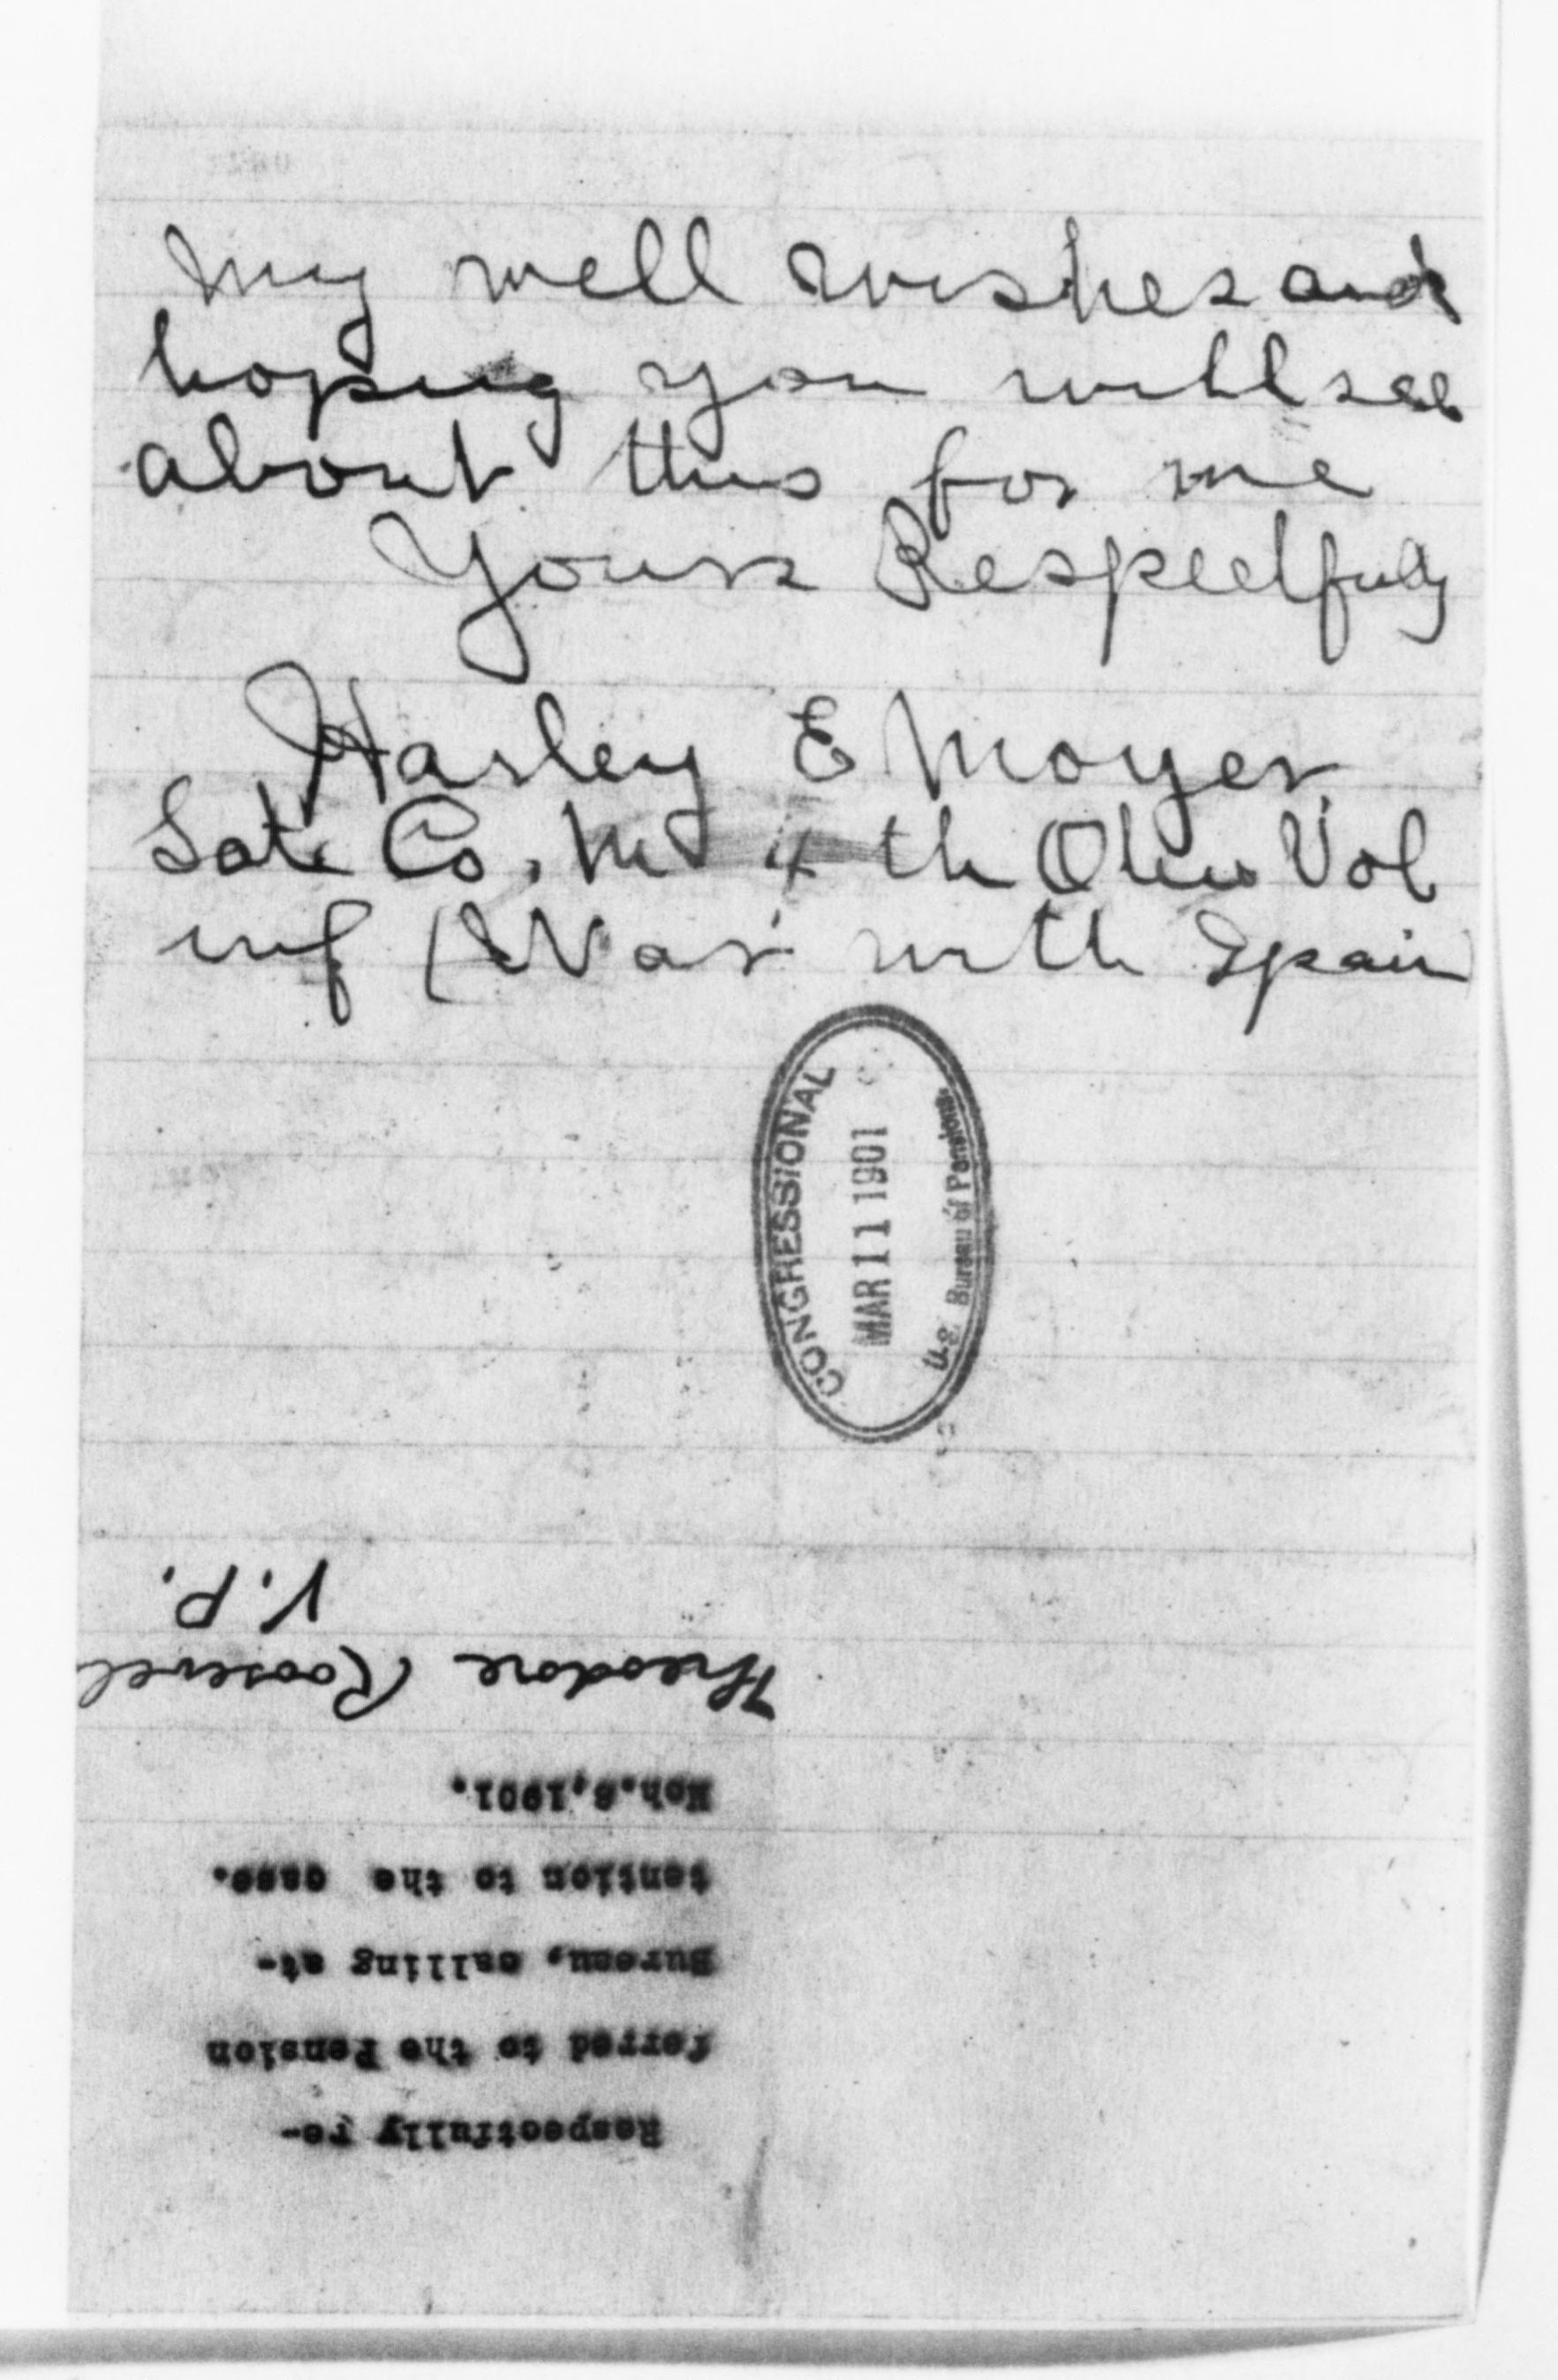 my well wishes and
hoping you will see
about this for me
Yours Respectfuly
Harley E Moyer
Late Co. M 4th Ohio Vol
inf (War with Spain
CONGRESSIONAL
MAR 11 1901
U.S. Bureau of Pensions.
Respectfully re-
ferred to the Pension
Bureau, calling at-
tention to the case.
Mch.8,1901.
Theodore Roosevel
V.P.